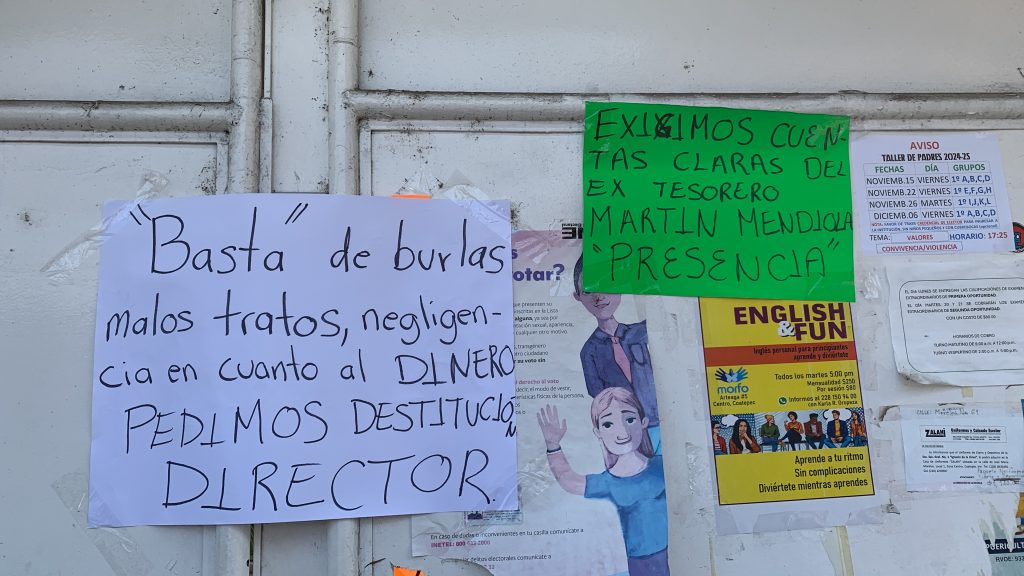 "Basta" de burlas
malos tratos, negligen-
cia en cuanto al DINERO
PEDIMOS DESTITUCION
DIRECTOR.
EXIGIMOS CUEN-
TAS CLARAS DEL
EX TESORERO
MARTIN MENDIOLA
"PRESENCIA"
AVISO
TALLER DE PADRES 2024-25
FECHAS DÍA GRUPOS
NOVIEMB.15 VIERNES 1º A,B,C,D
NOVIEMB.22 VIERNES 1º E,F,G,H
NOVIEMB.26 MARTES 1º I,J,K,L
DICIEMB.06 VIERNES 1º A,B,C,D
TEMA: VALORES HORARIO: 17:25
CONVIVENCIA/VIOLENCIA
otar?
ENGLISH
& FUN
Inglés personal para principiantes
aprende y diviértete
morfo
Arteaga #5
Centro, Coatepec
Todos los martes 5:00 pm
Mensualidad $250
Por sesión $80
Informes al 228 150 94 00
con Karla R. Oropeza
Aprende a tu ritmo
Sin complicaciones
Diviértete mientras aprendes
EL DIA LUNES SE ENTREGAN LAS CALIFICACIONES DE EXAMEN
EXTRAORDINARIOS DE PRIMERA OPORTUNIDAD
HORARIOS DE COBRO
ZALANI
Uniformes y Calzado Escolar
En caso de dudas o inconvenientes en tu casilla comunícate a
INETEL: 800 433 2000
delitos electorales comunícate a